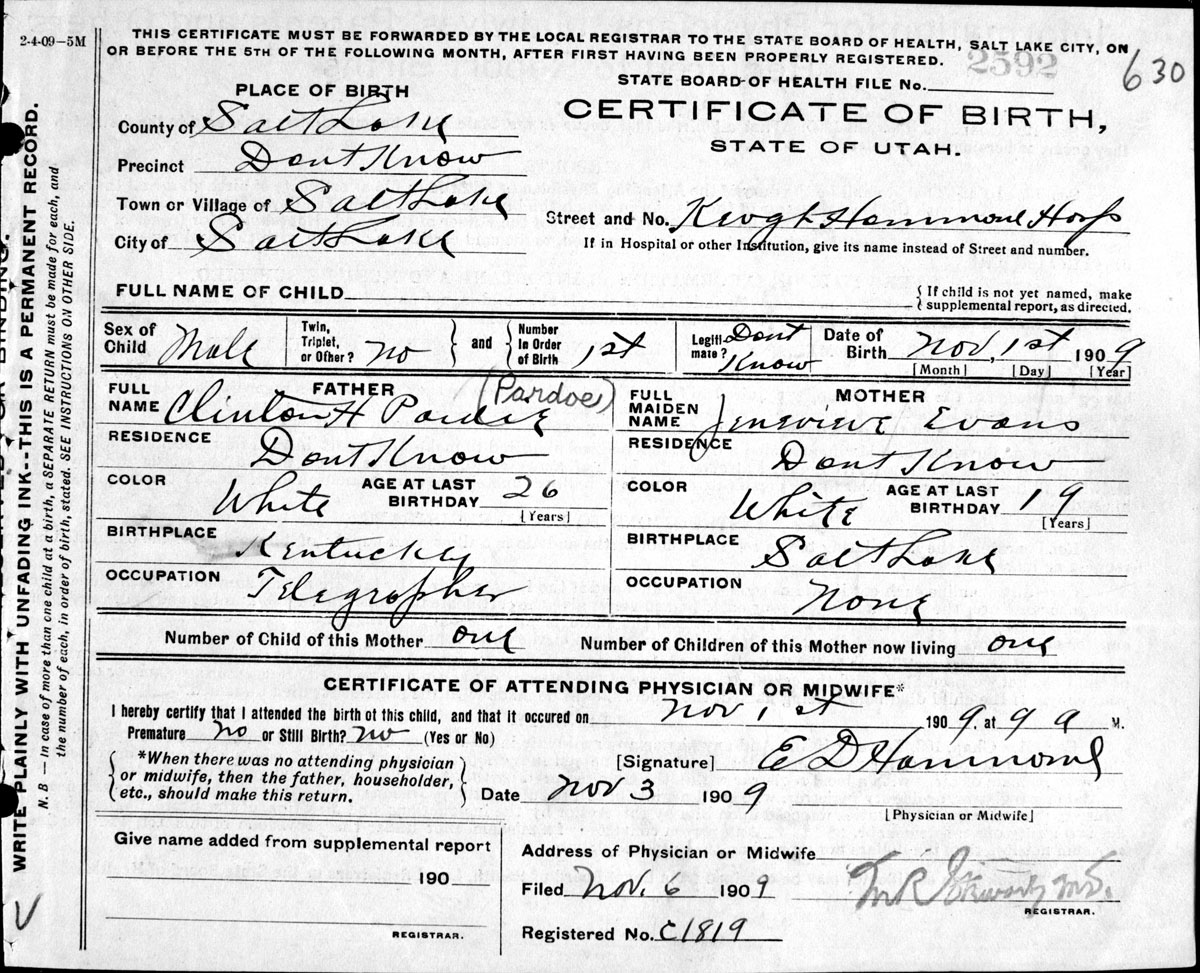 2-4-09-5M
THIS CERTIFICATE MUST BE FORWARDED BY THE LOCAL REGISTRAR TO THE STATE BOARD OF HEALTH, SALT LAKE CITY, ON
OR BEFORE THE 5TH OF THE FOLLOWING MONTH, AFTER FIRST HAVING BEEN PROPERLY REGISTERED.
2592
630
STATE BOARD OF HEALTH FILE No.
CERTIFICATE OF BIRTH,
STATE OF UTAH.
PLACE OF BIRTH
County of Salt Lake
Precinct Dont Know
Town or Village of Salt Lake
City of Salt Lake
Street and No. Hammond Hosp
If in Hospital or other Institution, give its name instead of Street and number.
FULL NAME OF CHILD
{ If child is not yet named, make
supplemental report, as directed.
Sex of Child Male
Twin, Triplet, or Other? no
and
Number In Order of Birth 1st
Legitimate? Dont Know
Date of Birth Nov, 1st 1909
[Month] [Day] [Year]
FATHER
FULL NAME Clinton H (Pardoe)
RESIDENCE Dont Know
COLOR White
AGE AT LAST BIRTHDAY 26
[Years]
BIRTHPLACE Kentucky
OCCUPATION Telegrapher
MOTHER
FULL MAIDEN NAME Jenevieve Evans
RESIDENCE Dont Know
COLOR White
AGE AT LAST BIRTHDAY 19
[Years]
BIRTHPLACE Salt Lake
OCCUPATION None
Number of Child of this Mother one
Number of Children of this Mother now living one
CERTIFICATE OF ATTENDING PHYSICIAN OR MIDWIFE*
I hereby certify that I attended the birth of this child, and that it occured on Nov, 1st 1909. at 9 a M.
Premature no or Still Birth? no (Yes or No)
*When there was no attending physician
or midwife, then the father, householder,
etc., should make this return.
[Signature] E D Hammond
Date Nov 3 1909
[Physician or Midwife]
Give name added from supplemental report
190
REGISTRAR.
Address of Physician or Midwife
Filed Nov. 6 1909
REGISTRAR.
Registered No. C1819
WRITE PLAINLY WITH UNFADING INK--THIS IS A PERMANENT RECORD.
N. B — In case of more than one child at a birth, a SEPARATE RETURN must be made for each, and
the number of each, in order of birth, stated. SEE INSTRUCTIONS ON OTHER SIDE.